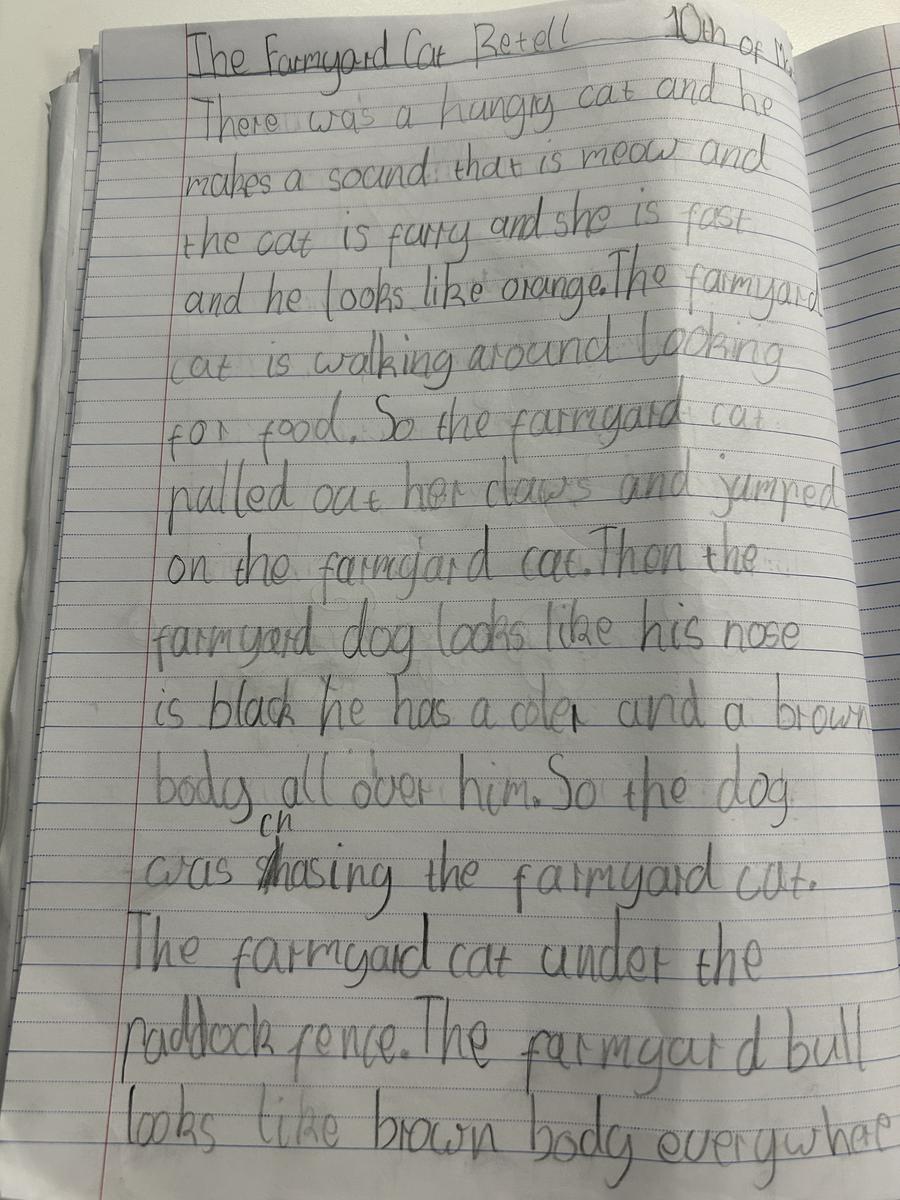 The Farmyard Cat Retell 10th of
There was a hungry cat and he
makes a sound that is meow and
the cat is furry and she is fast
and he looks like orange. The farmyard
cat is walking around looking
for food. So the farmyard cat
pulled out her claws and jumped
on the farmyard cat. Then the
farmyard dog looks like his nose
is black he has a coler and a brown
body all over him. So the dog
ch
was shasing the farmyard cat.
The farmyard cat under the
paddock fence. The farmyard bull
looks like brown body everywhae